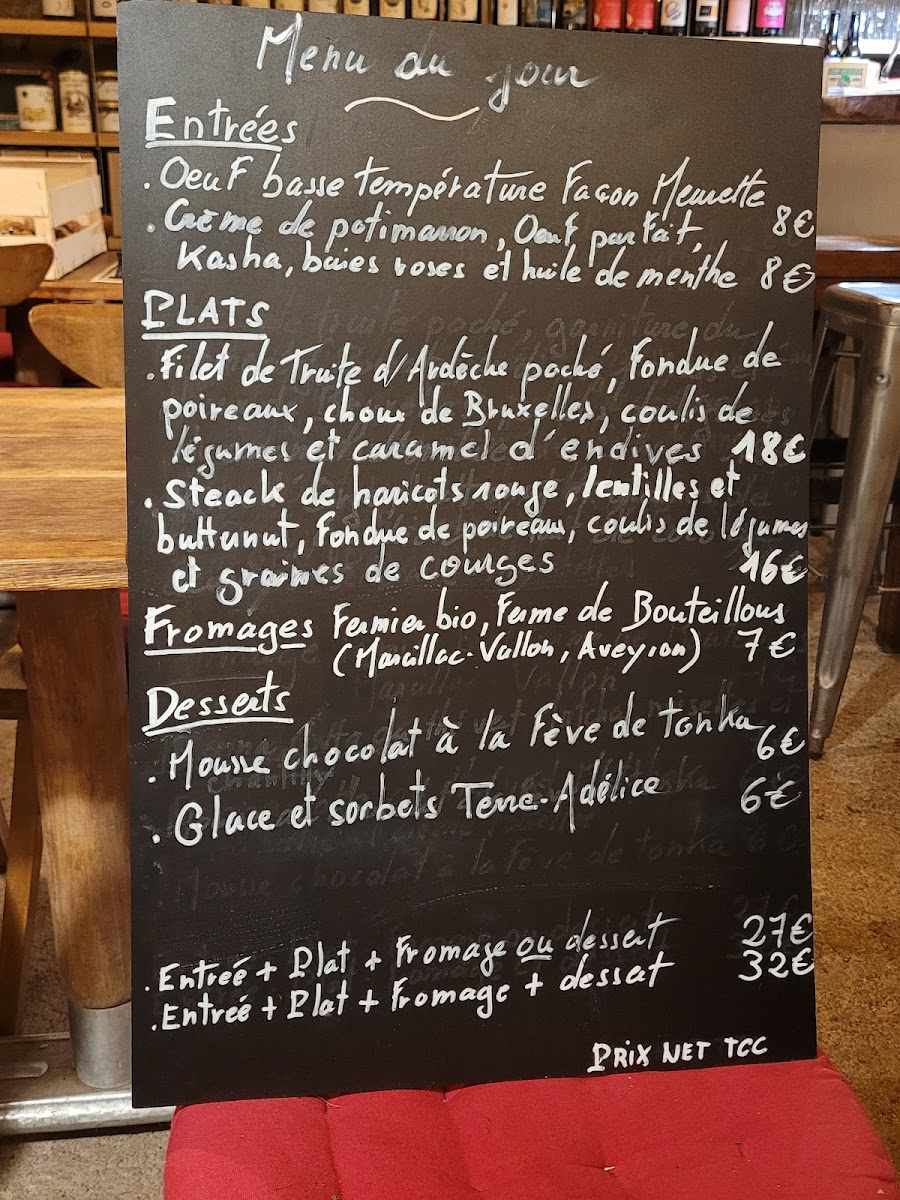 Menu du jour
Entrées
. Oeuf basse température Façon Meurette 8€
. Crème de potimarron, Oeuf parfait,
Kasha, baies roses et huile de menthe 8€
PLATS
. Filet de Truite d'Ardèche poché, Fondue de
poireaux, choux de Bruxelles, coulis de
légumes et caramel d'endives 18€
. Steack de haricots rouge, lentilles et
butturnut, Fondue de poireau, coulis de légumes
et graines de courges 16€
Fromages Fermier bio, Ferme de Bouteillous
(Marcillac-Vallon, Aveyron) 7€
Desserts
. Mousse chocolat à la Fève de tonka 6€
. Glace et sorbets Terre-Adélice 6€
. Entreé + Plat + Fromage ou dessert 27€
. Entreé + Plat + Fromage + dessert 32€
PRIX NET TCC